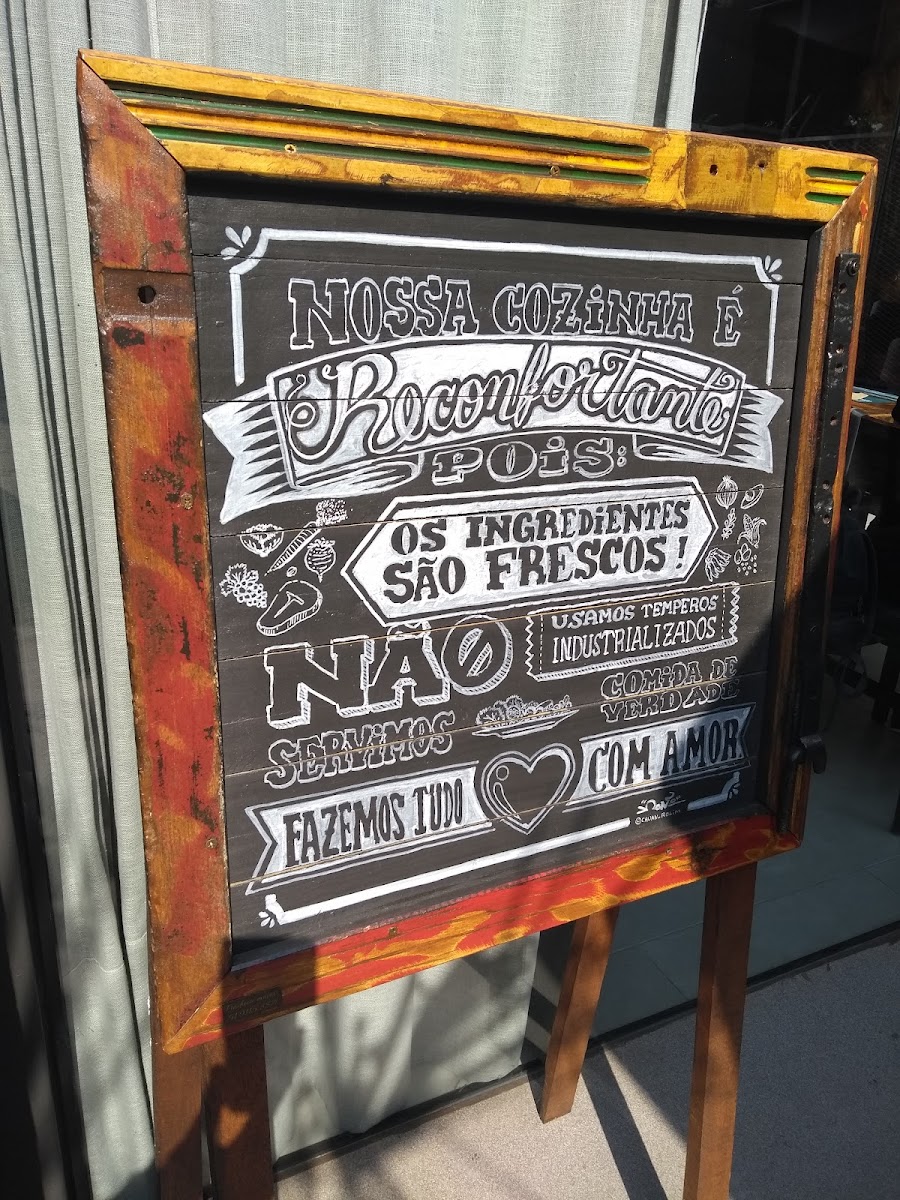 NOSSA COZiNHA É
Reconfortante
POiS:
OS INGREDiENTES
SÃO FRESCOS!
NÃO
USAMOS TEMPEROS
INDUSTRIALIZADOS
SERViMOS
COMiDA DE
VERDADE
FAZEMOS TUDO
COM AMOR